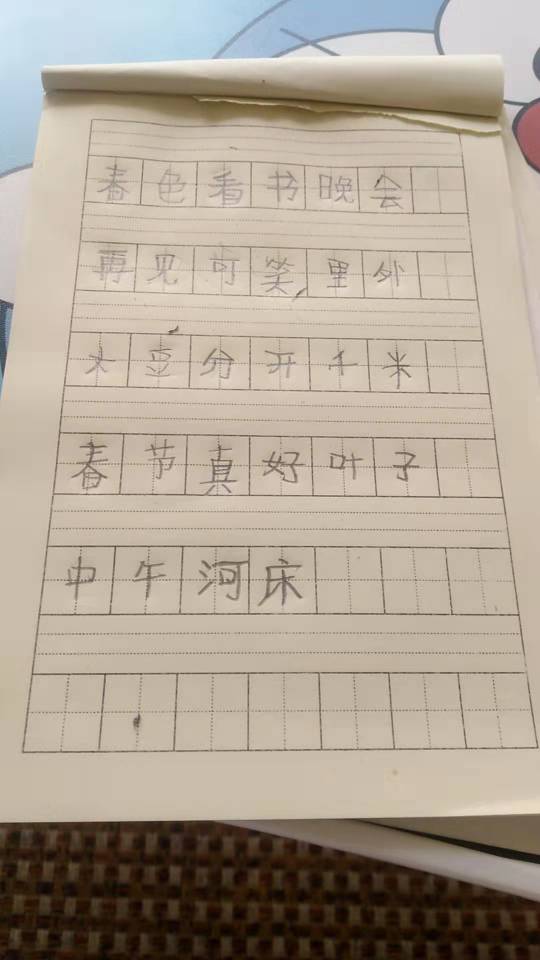 春色看书晚会
再见可笑里外
大豆分开千米
春节真好叶子
中午河床